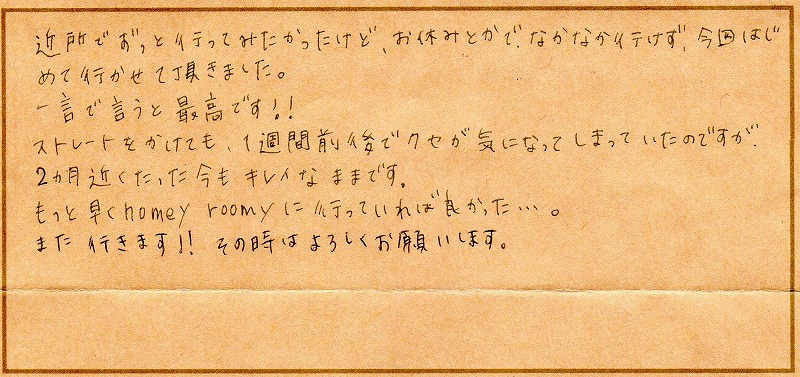 近所でずっと行ってみたかったけど、お休みとかで、なかなか行けず、今回はじ
めて行かせて頂きました。
一言で言うと最高です!!
ストレートをかけても、1週間前後でクセが気になってしまっていたのですが、
2ヵ月近くたった今もキレイなままです。
もっと早くhomey roomyに行っていれば良かった…。
また行きます!! その時はよろしくお願いします。